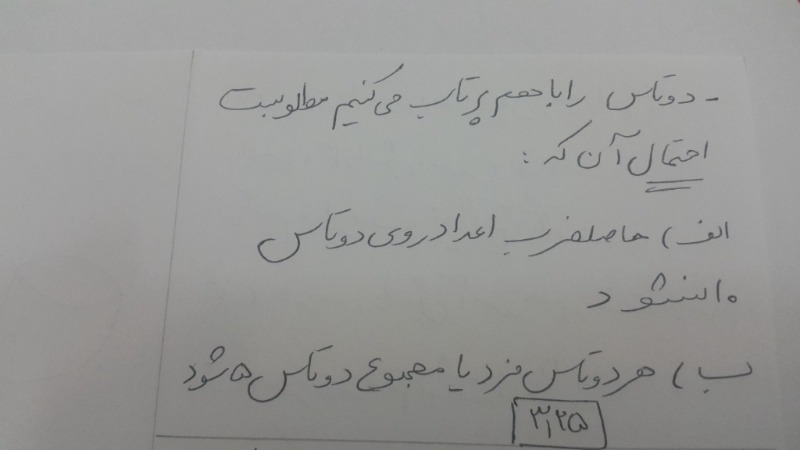 - دو تاس را با هم پرتاب می کنیم مطلوبست
احتمال آن که :
الف) حاصلضرب اعداد روی دو تاس
۱۰ نشود
ب) هر دو تاس فرد یا مجموع دو تاس ۵ شود
۳,۲۵